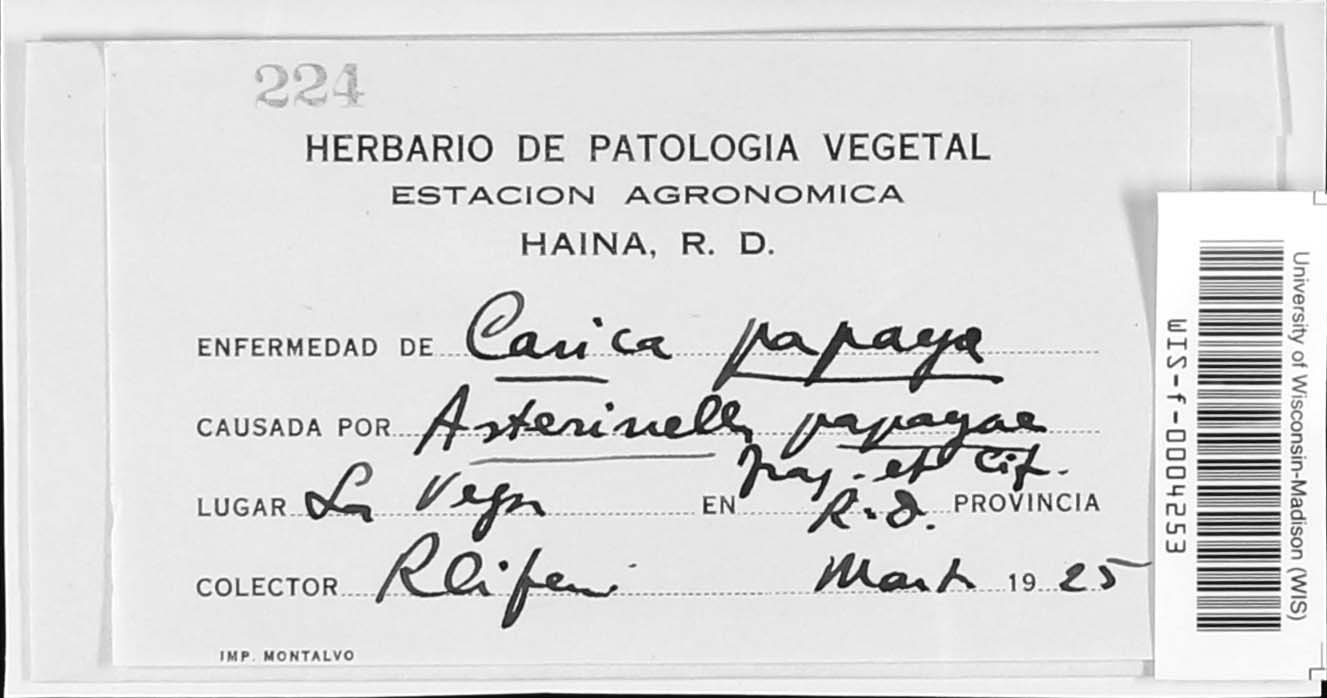 224
HERBARIO DE PATOLOGIA VEGETAL
ESTACION AGRONOMICA
HAINA, R. D.
ENFERMEDAD DE Carica papaya
CAUSADA POR Asterinella papayae
Frag. et Cif.
LUGAR La Vega EN R. D. PROVINCIA
COLECTOR R Ciferri Mart 19 25
IMP. MONTALVO
University of Wisconsin-Madison (WIS)
WIS-f-0004253